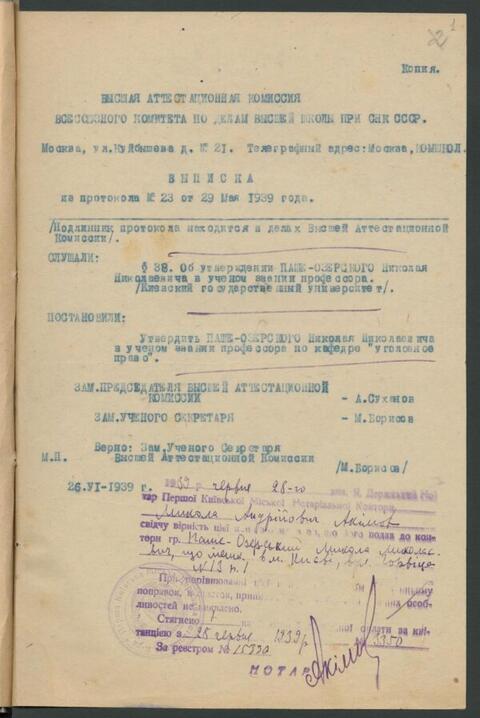 2
1
Копия.
ВЫСШАЯ АТТЕСТАЦИОННАЯ КОМИССИЯ
ВСЕСОЮЗНОГО КОМИТЕТА ПО ДЕЛАМ ВЫСШЕЙ ШКОЛЫ ПРИ СНК СССР.
Москва, ул.Куйбышева д. № 21. Телеграфный адрес: Москва, КОМШКОЛ.
ВЫПИСКА
из протокола № 23 от 29 Мая 1939 года.
/Подлинник протокола находится в делах Высшей Аттестационной
Комиссии/.
СЛУШАЛИ:
§ 38. Об утверждении ПАШЕ-ОЗЕРСКОГО Николая
Николаевича в ученом звании профессора.
/Киевский государственный университет/.
ПОСТАНОВИЛИ:
Утвердить ПАШЕ-ОЗЕРСКОГО Николая Николаевича
в ученом звании профессора по кафедре "уголовное
право".
ЗАМ.ПРЕДСЕДАТЕЛЯ ВЫСШЕЙ АТТЕСТАЦИОННОЙ
КОМИССИИ - А.Суханов
ЗАМ.УЧЕНОГО СЕКРЕТАРЯ - М.Борисов
Верно: Зам.Ученого Секретаря
М.П. Высшей Аттестационной Комиссии
/М.Борисов/
26.VI-1939 г.
1939 р червня 28-го я, Державний Но
тар Першої Київської Міської Нотаріальної Контори
Микола Андрійович Акімов
свідчу вірність цієї його подав до кон-
тори гр. Паше-Озерський Микола Микола-
що меш. в м. Києві, вул.
№ 13 п. 1
При порівнянні
поправок, приписок, особ-
ливостей не виявлено.
Стягнено оплати за кві-
танцією з 28 червня 1939 р № 3350
За реєстром № 15390
НОТАР Акімов